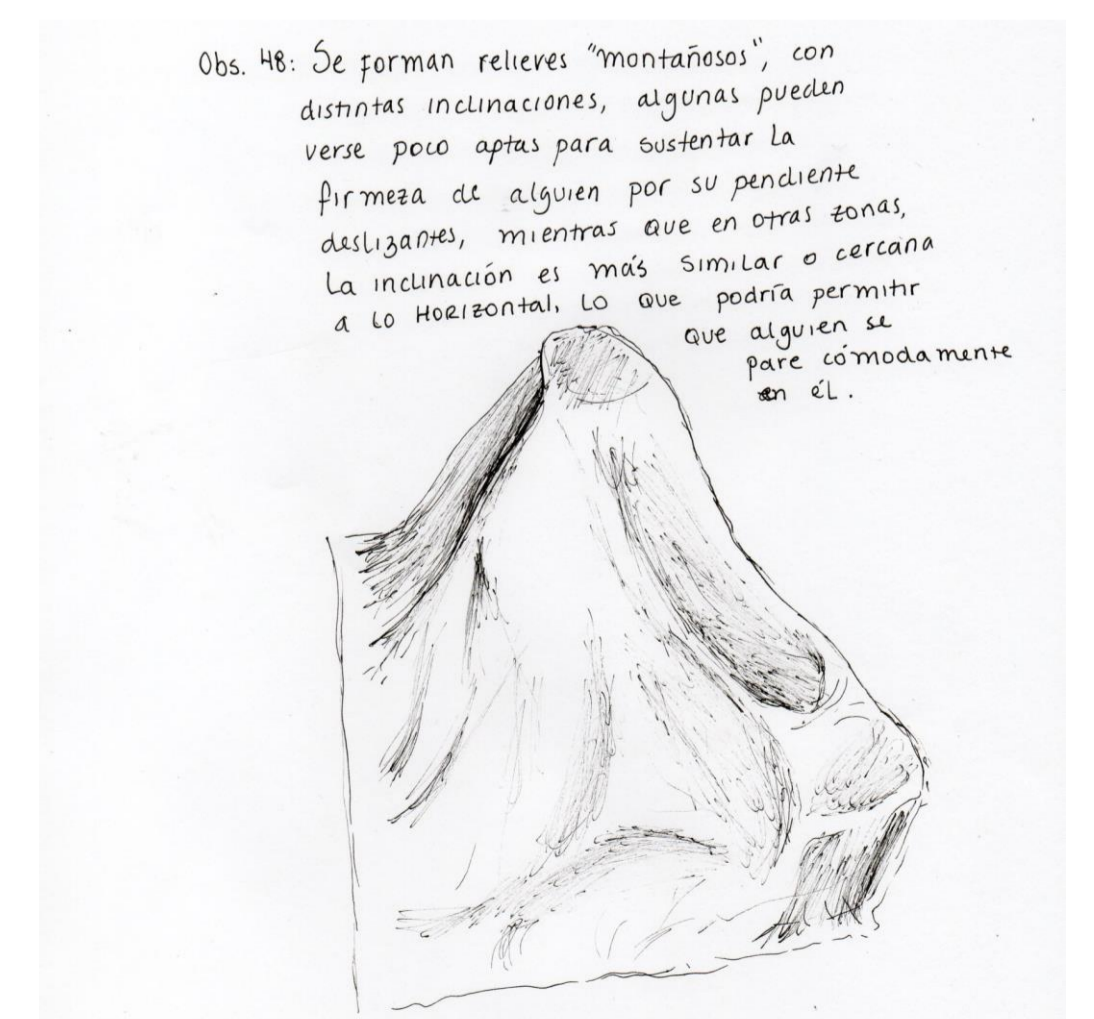 Obs. 48: Se forman relieves "montañosos", con
distintas inclinaciones, algunas pueden
verse poco aptas para sustentar la
firmeza de alguien por su pendiente
deslizantes, mientras que en otras zonas,
la inclinación es más similar o cercana
a lo Horizontal, lo que podría permitir
que alguien se
pare cómodamente
en él.